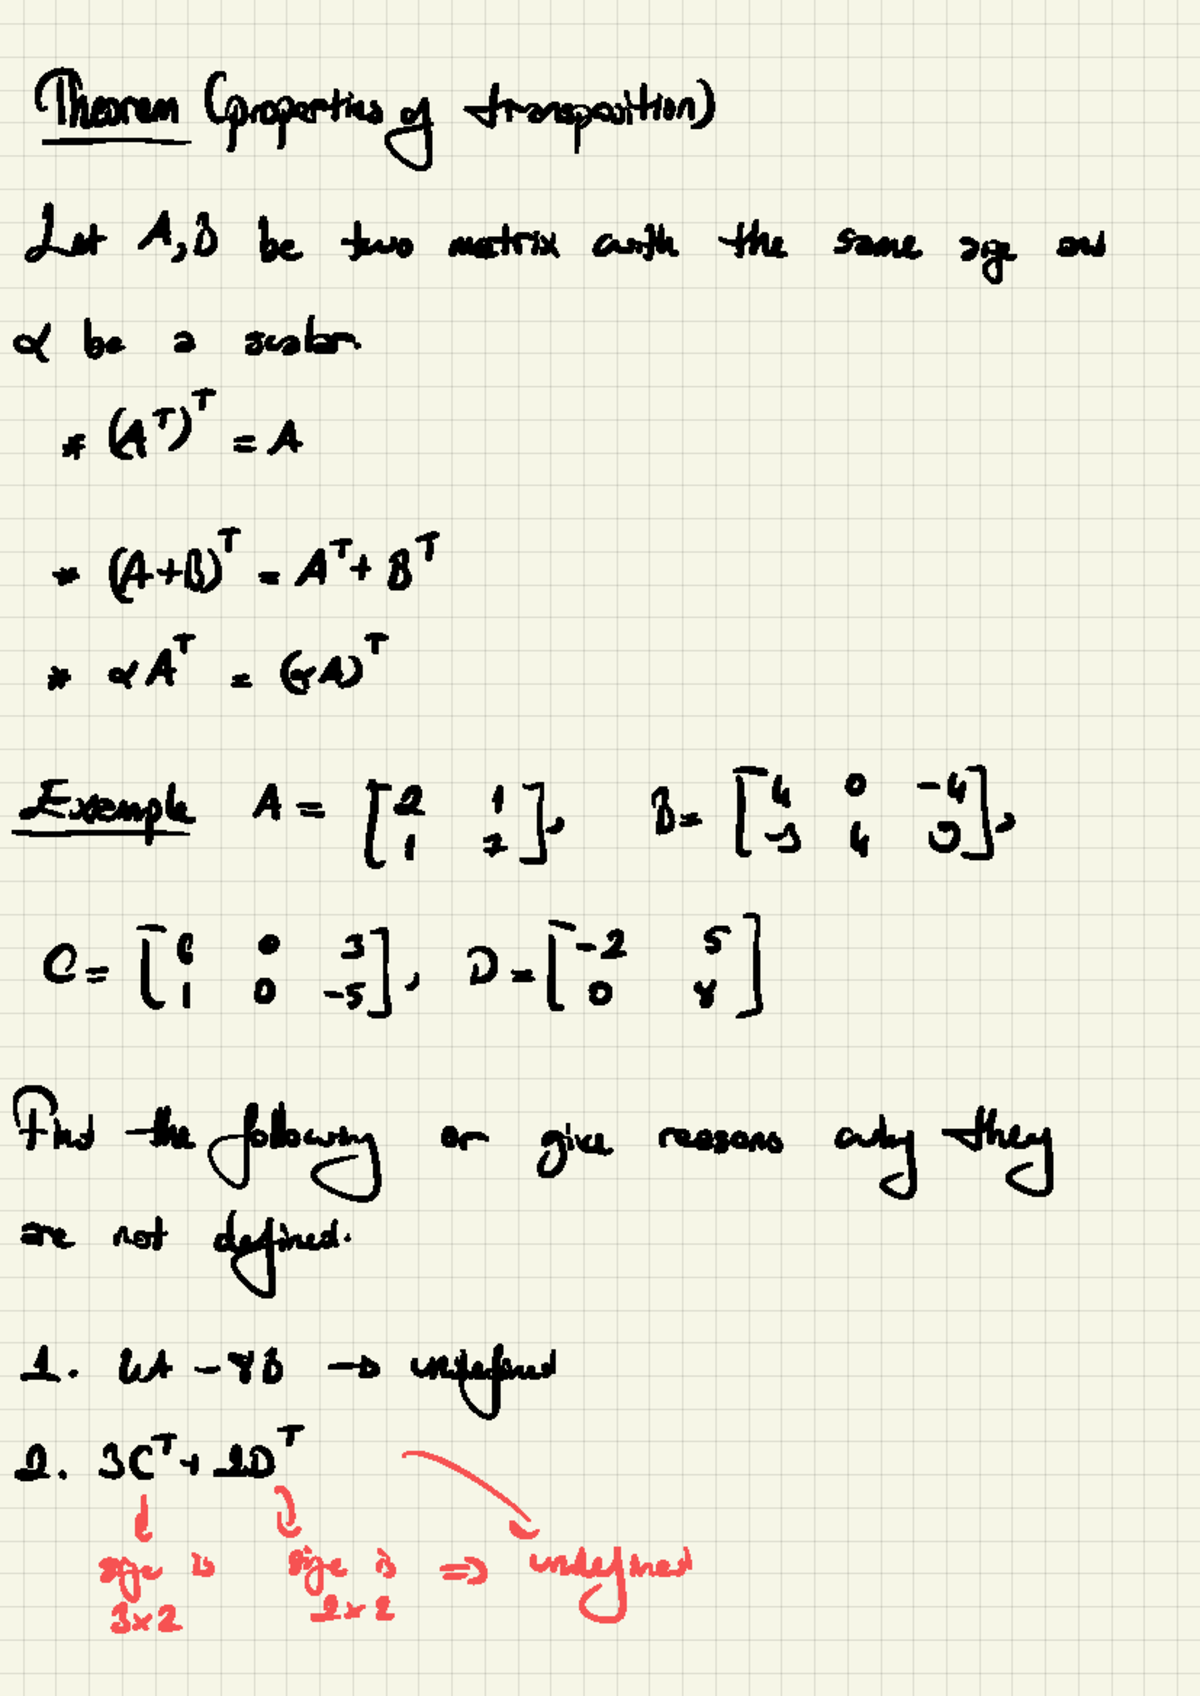 Theorem (properties of transposition)
Let A, B be two matrix with the same size and
α be a scalar.
* (A^T)^T = A
* (A+B)^T = A^T + B^T
* αA^T = (αA)^T
Example A = [2 1; 1 7], B = [4 0 -4; 4],
C = [6 0 3; 1 0 -5], D = [-2 5; 0 8]
Find the following or give reasons why they
are not defined.
1. 4A - 8B → undefined
2. 3C^T + 2D^T
size is size is ⇒ undefined
3x2 2x2